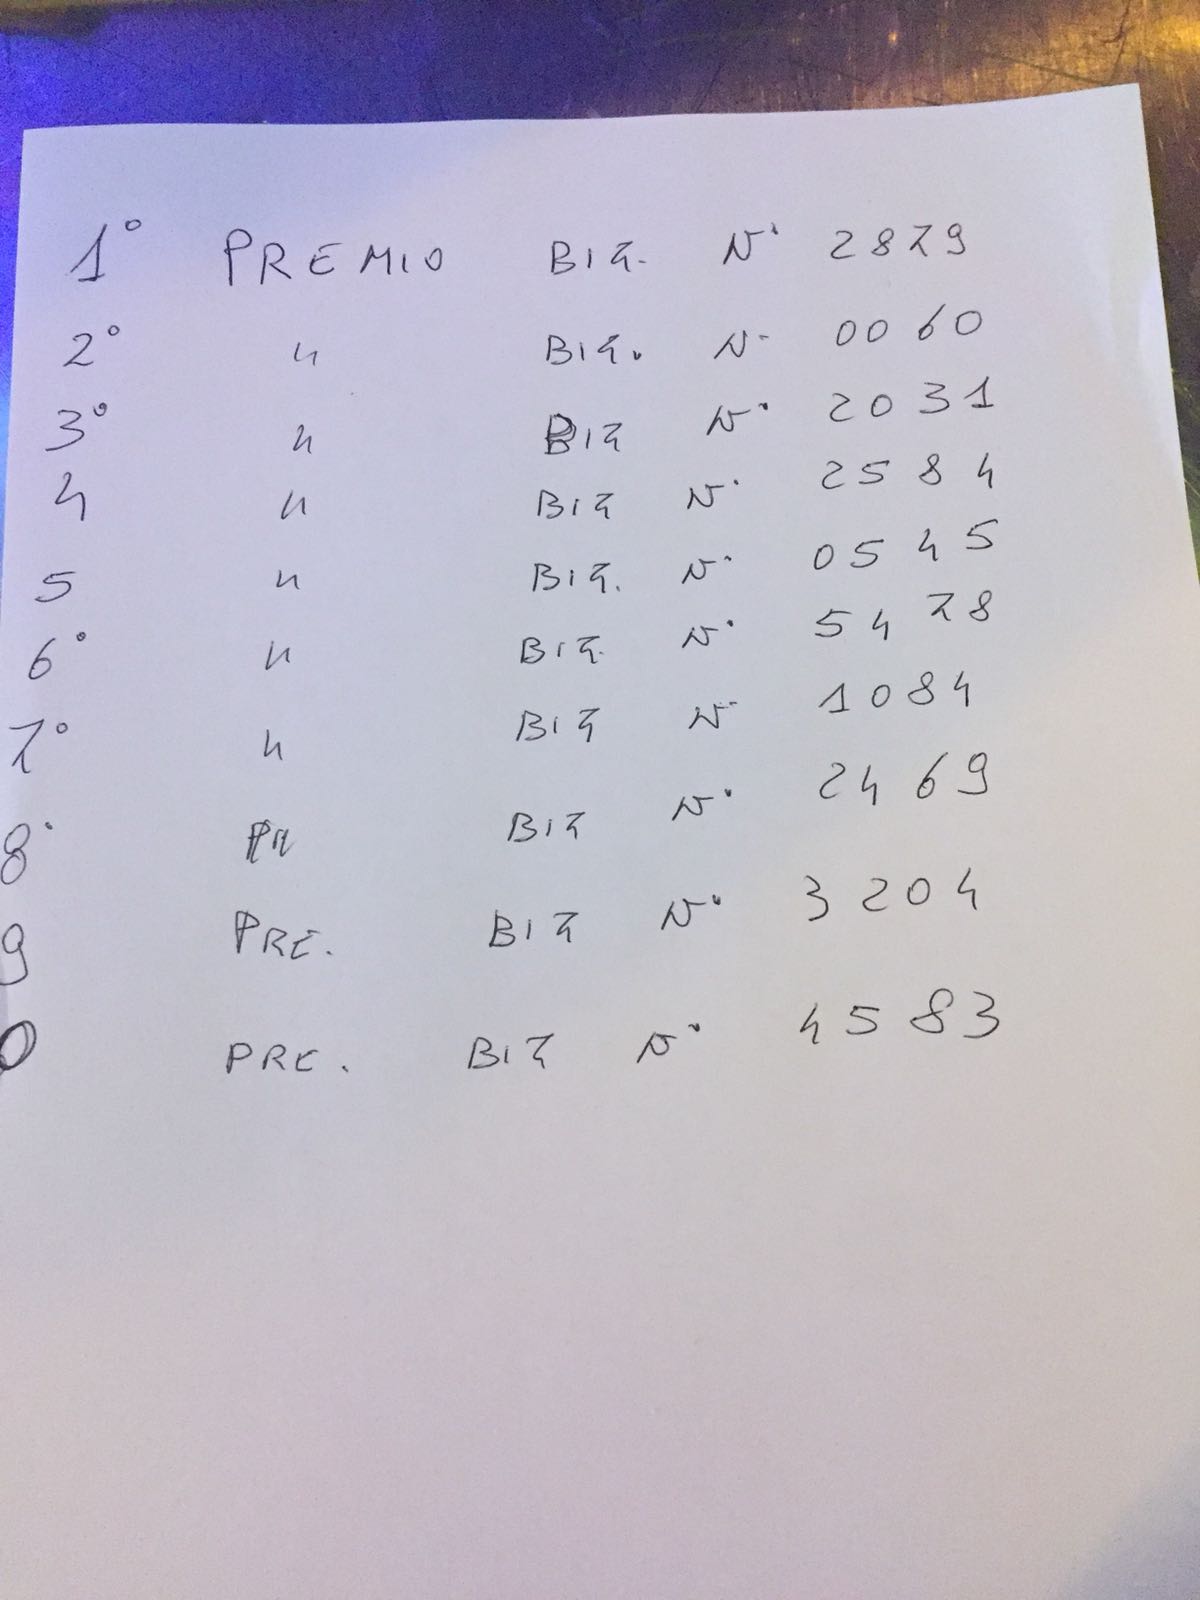 1° PREMIO BIG. N° 2879
2° " BIG. N. 0060
3° " BIG N° 2031
4 " BIG N° 2584
5 " BIG. N° 0545
6° " BIG. N° 5478
7° " BIG N° 1084
8° " BIG N° 2469
9 PRE. BIG N° 3204
0 PRE. BIG N° 4583